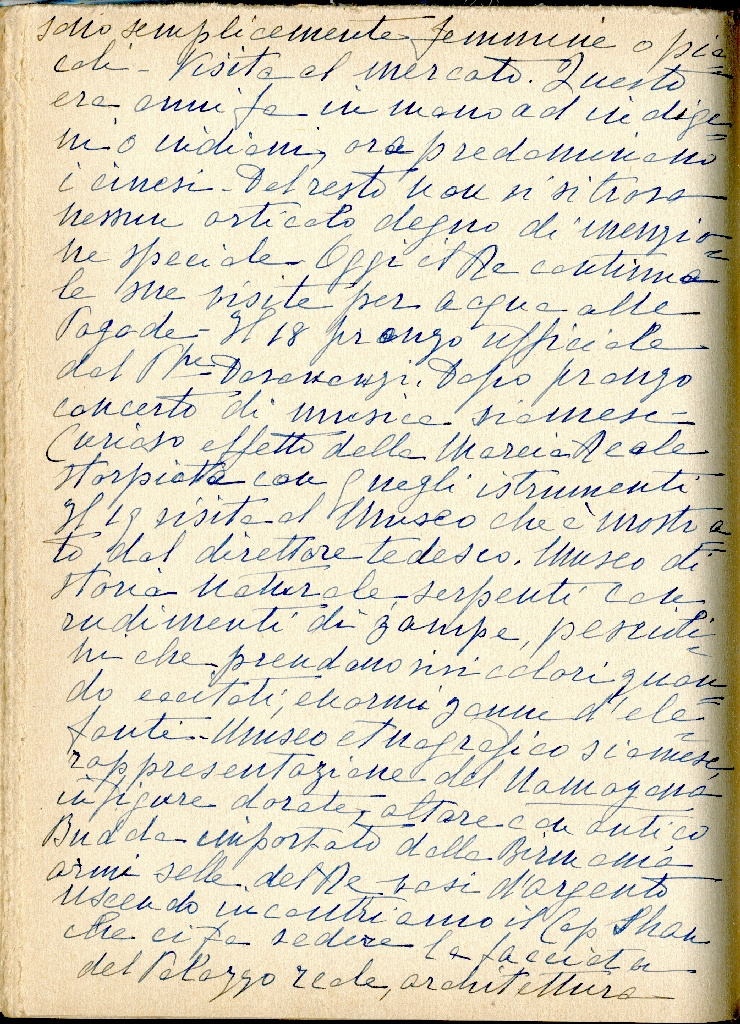 sono semplicemente femmine o pic=
coli - Visita al mercato. Questo
era anni fa in mano ad indige=
ni o indiani, ora predominano
i cinesi - Del resto non vi si trova
nessun articolo degno di menzio=
ne speciale - Oggi il Re continua
le sue visite per acqua alle
Pagode - Il 18 pranzo ufficiale
dal Pne Devawongi. Dopo pranzo
concerto di musica siamese -
Curioso effetto della Marcia Reale
storpiata con quegli istrumenti
Il 19 visita al Museo che è mostra=
to dal direttore tedesco. Museo di
storia naturale, serpenti con
rudimenti di zampe, pescioli=
ni che prendono vivi colori quan=
do eccitati, enormi zanne d'ele=
fanti - Museo etnografico siamese,
rappresentazione del Ramayana
in figure dorate, altare con antico
Budda importato dalla Birmania
armi selle del Re vasi d'argento
uscendo incontriamo il Cap
che ci fa vedere la facciata
del Palazzo reale, architettura